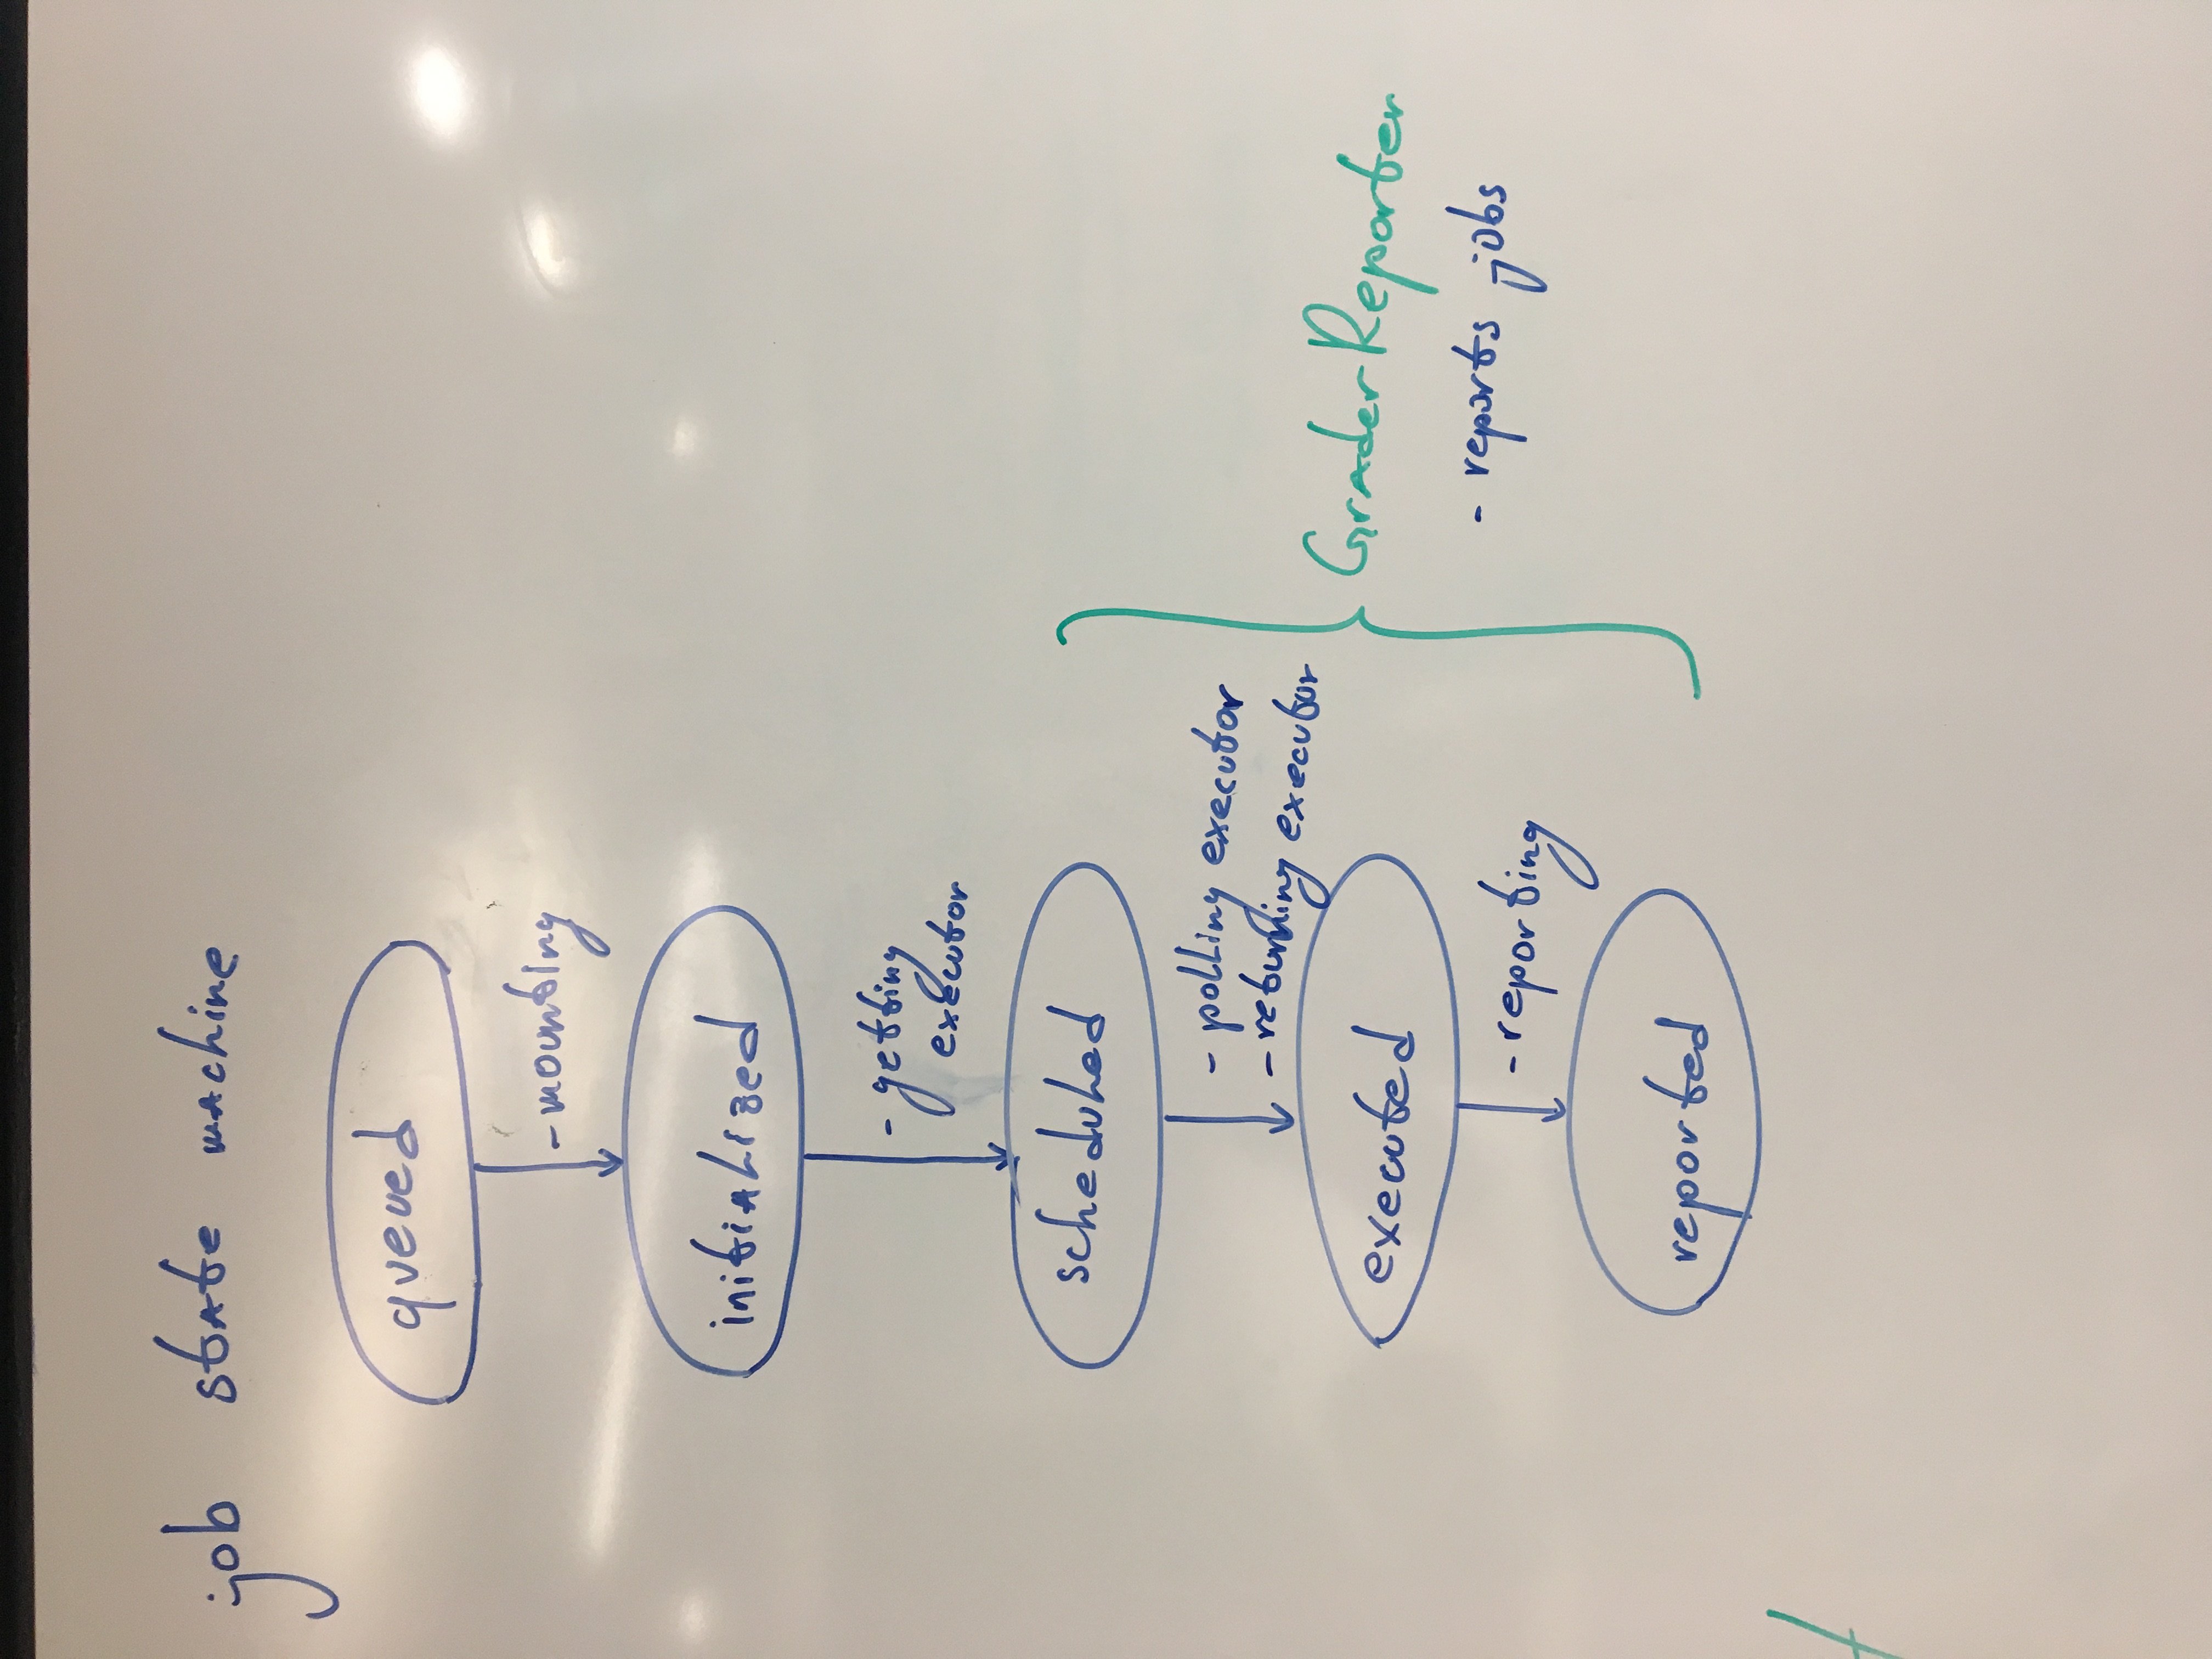 job state machine
queued
- mounting
initialized
- getting
executor
scheduled
- polling executor
- returning executor
executed
- reporting
reported
GraderReporter
- reports jobs